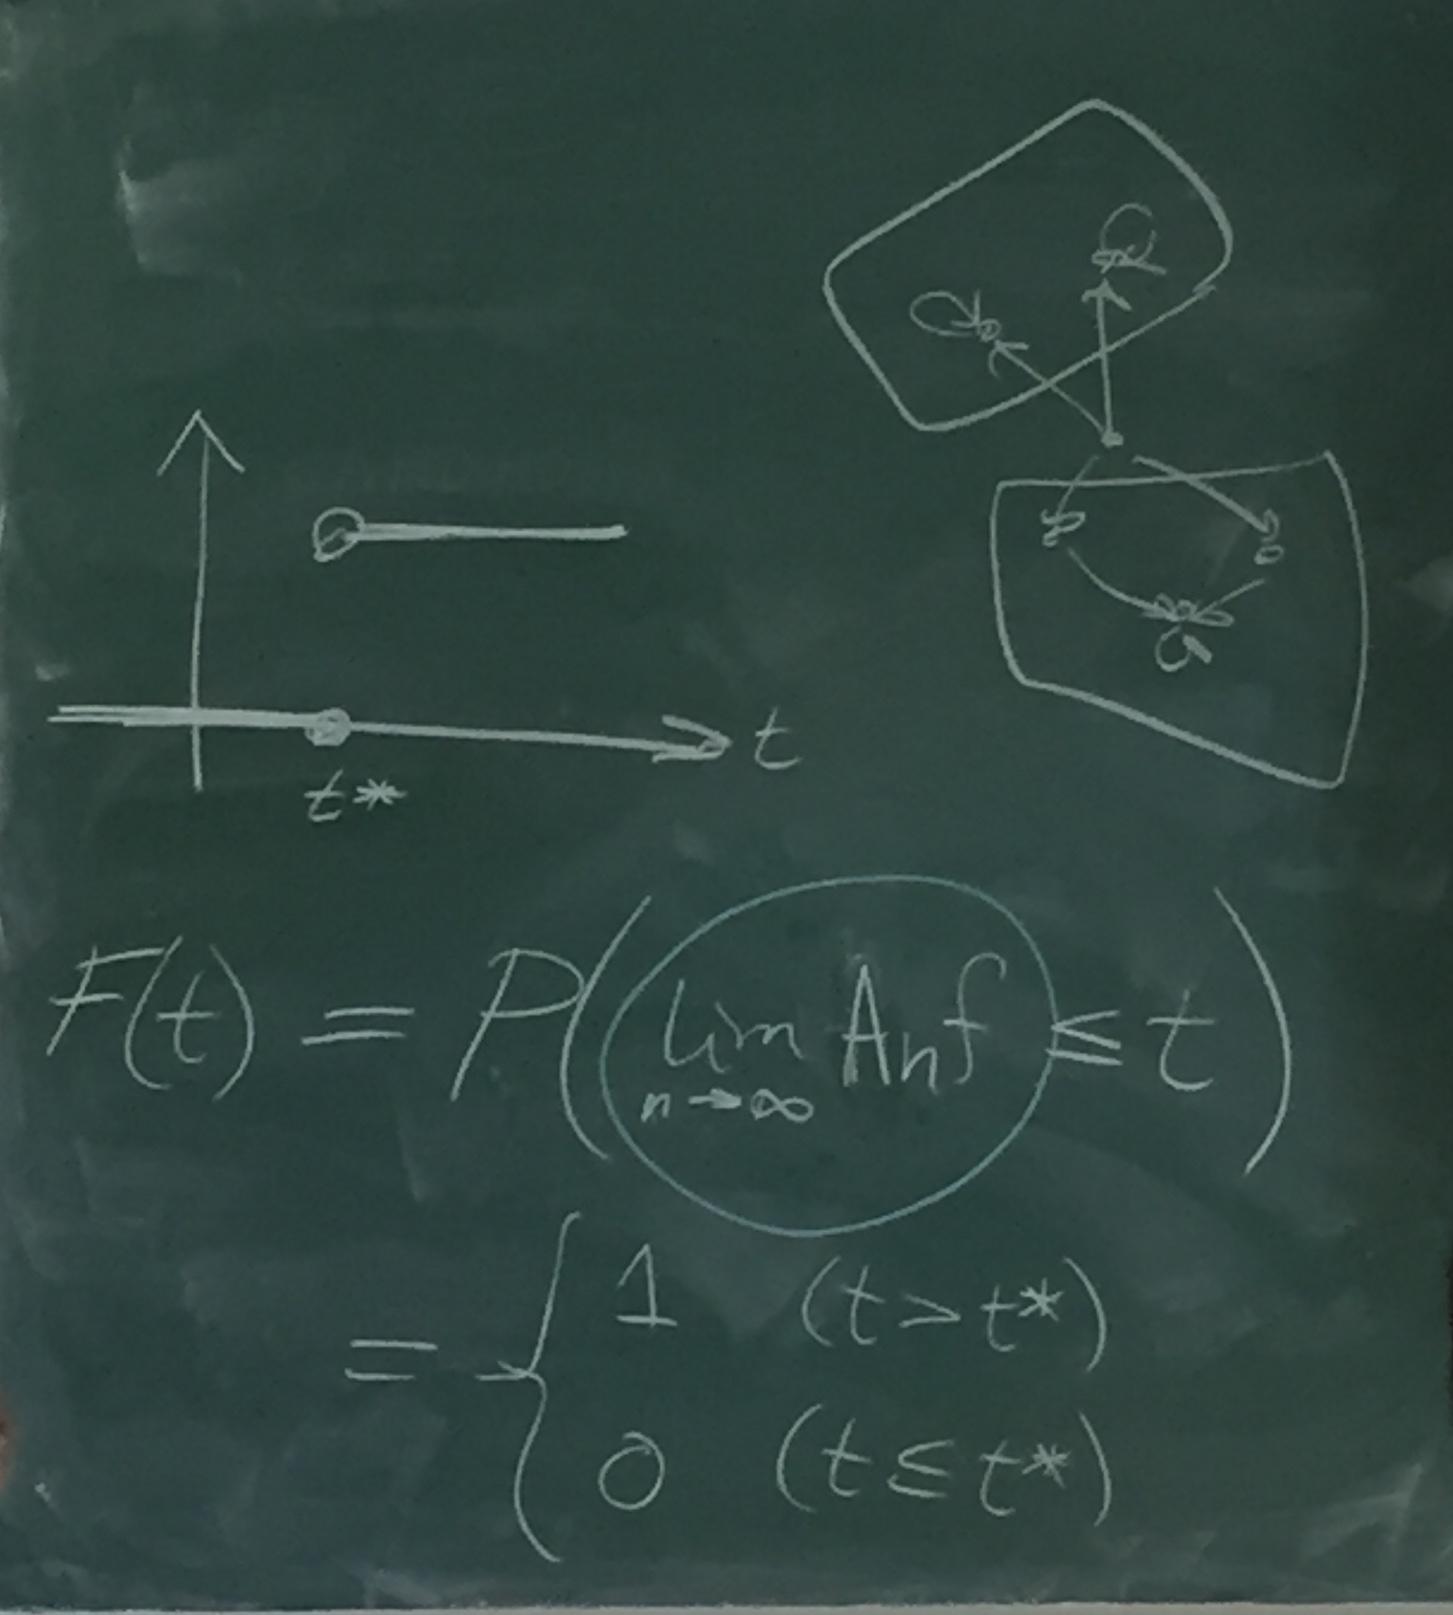 t
t*
F(t) = P( lim Anf ≤ t )
n→∞
= { 1 (t > t*)
0 (t ≤ t*)